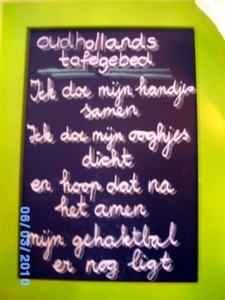 oudhollands
tafelgebed
Ick doe mijn handje
samen
Ick doe mijn ooghjes
dicht
en hoop dat na
het amen
mijn gehaktbal
er nog ligt
06/03/2010